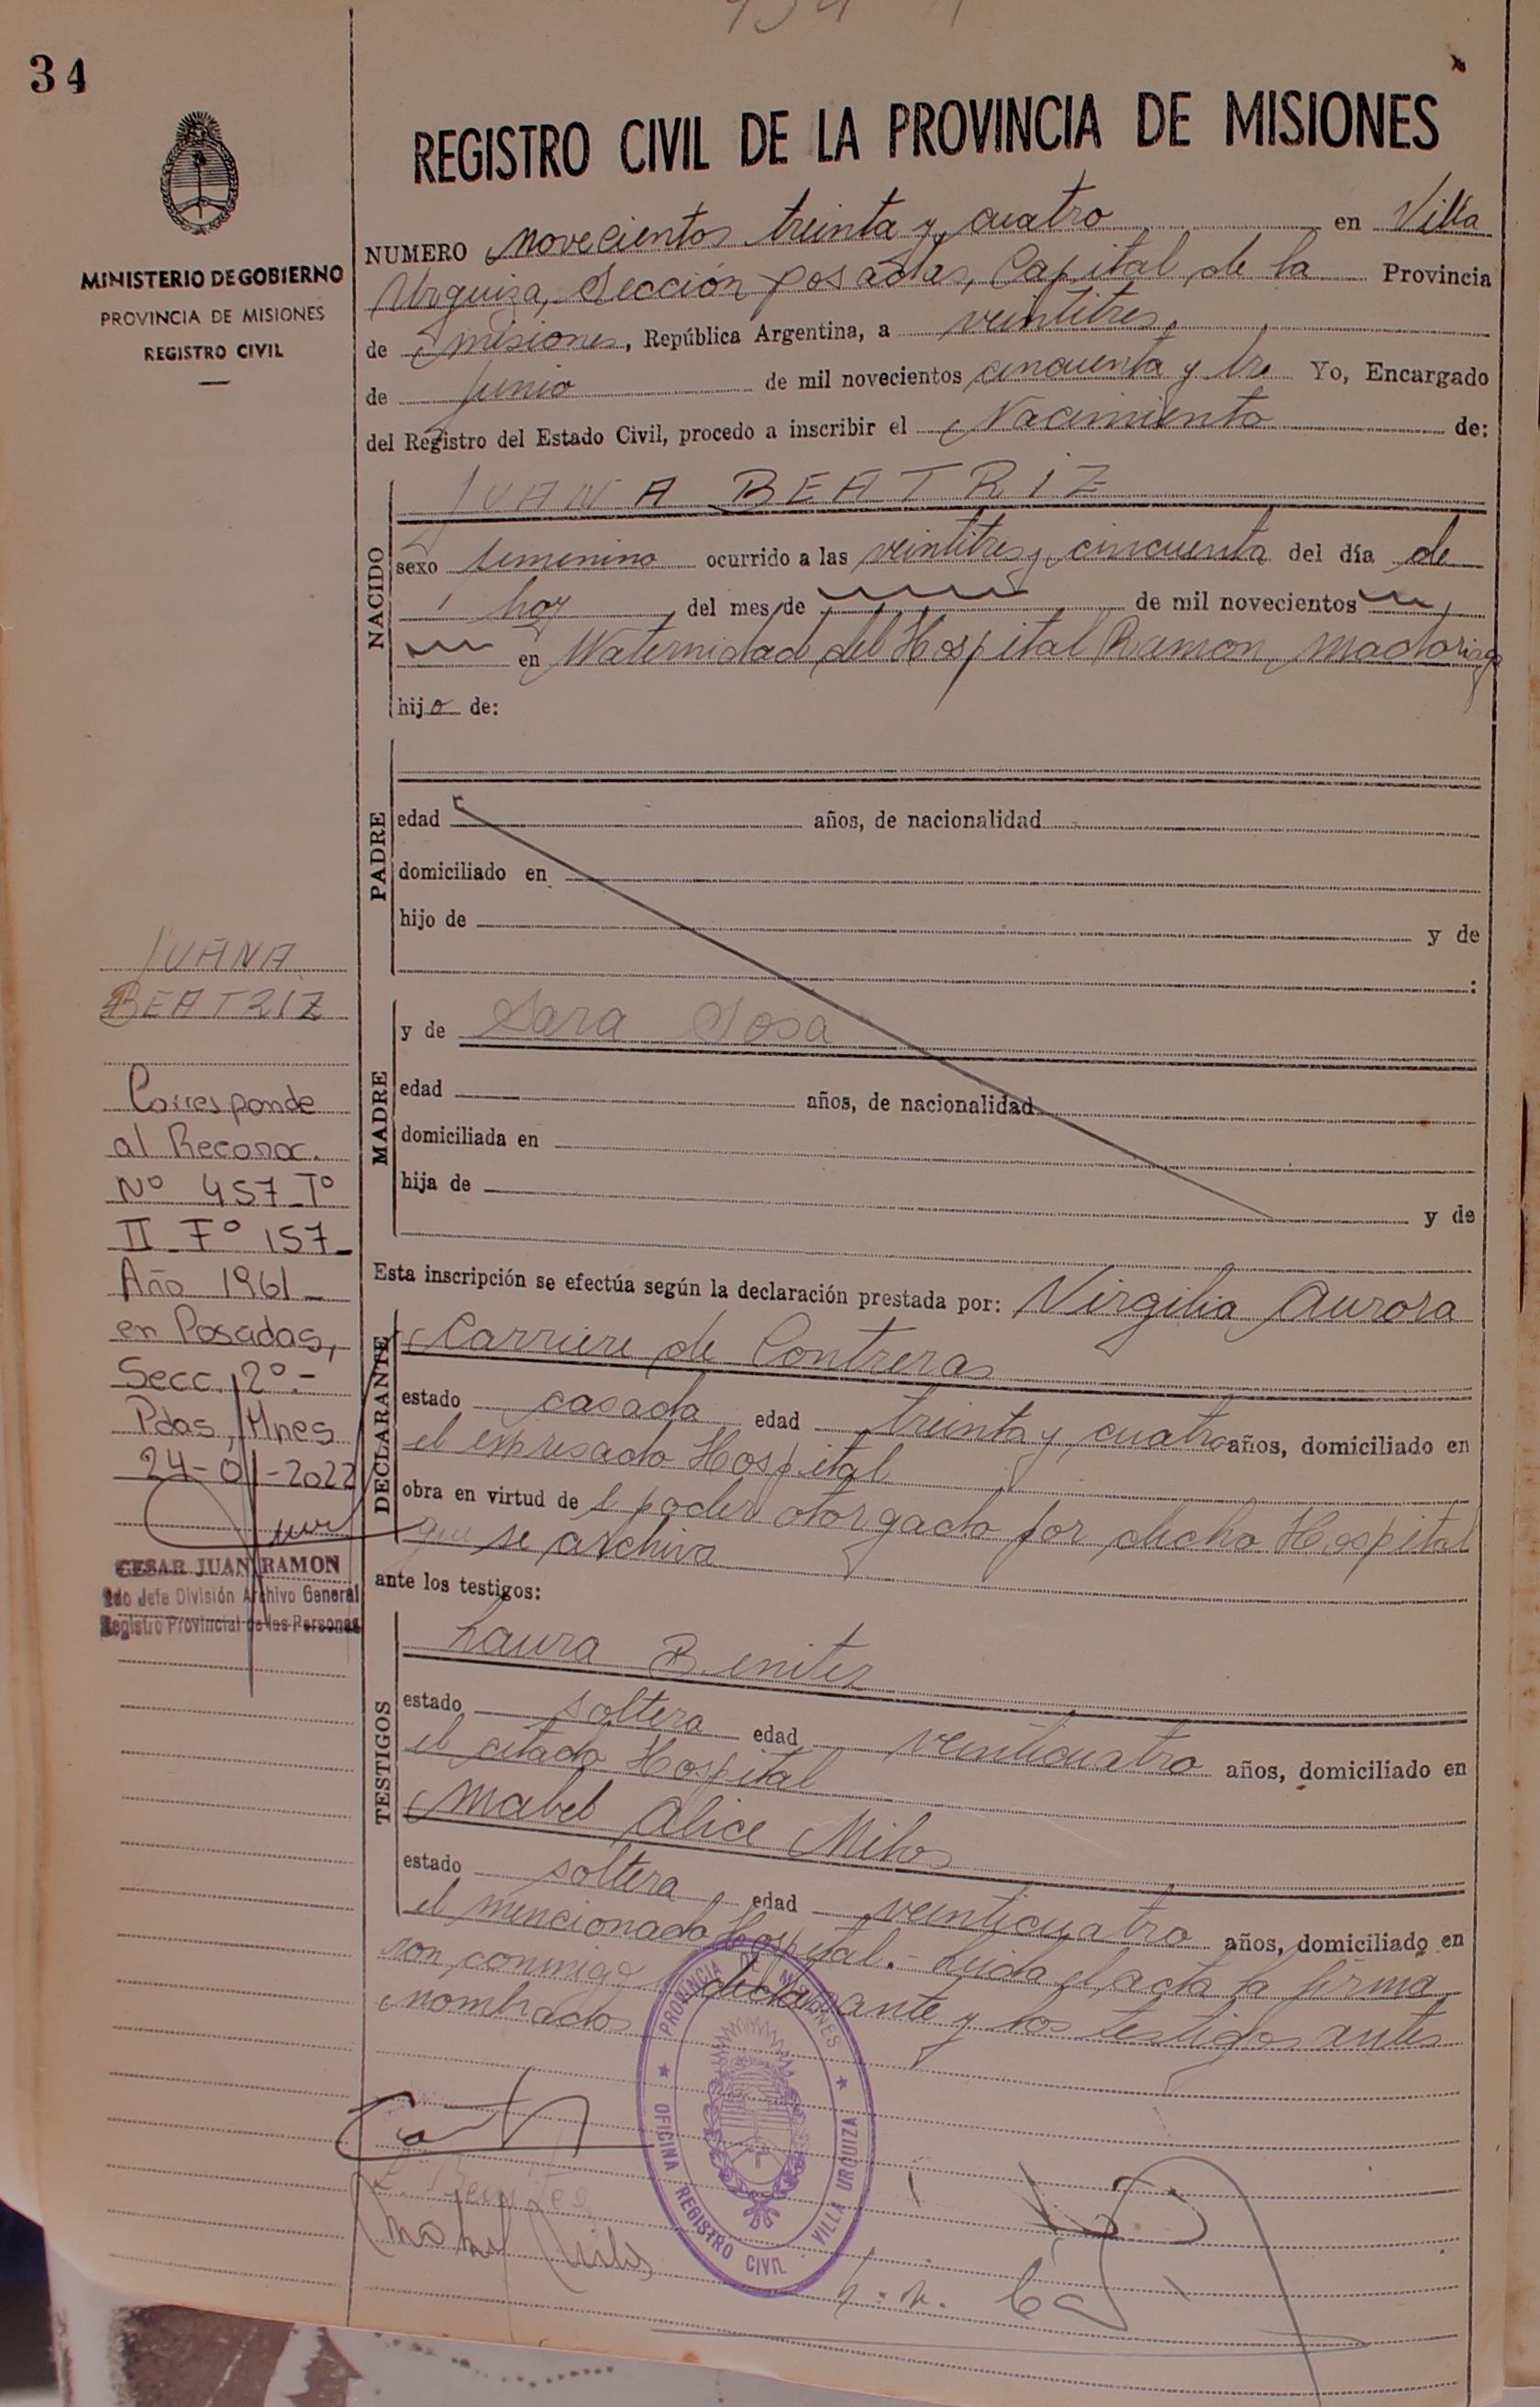 934
34
REGISTRO CIVIL DE LA PROVINCIA DE MISIONES
MINISTERIO DE GOBIERNO
PROVINCIA DE MISIONES
REGISTRO CIVIL
NUMERO novecientos treinta y cuatro en Villa
Urquiza, Sección posadas, Capital de la Provincia
de misiones, República Argentina, a veintitres,
de Junio de mil novecientos cincuenta y tre Yo, Encargado
del Registro del Estado Civil, procedo a inscribir el Nacimiento de:
NACIDO
JUANA BEATRIZ
sexo femenino ocurrido a las veintitres y cincuenta del día de
hoy, del mes de de mil novecientos
en Maternidad del Hospital Ramon Madariaga
hija de:
PADRE
edad años, de nacionalidad
domiciliado en
hijo de y de
:
MADRE
y de Sara Sosa
edad años, de nacionalidad
domiciliada en
hija de y de
JUANA
BEATRIZ
Corresponde
al Reconoc.
Nº 457 Tº
II Fº 157
Año 1961
en Posadas,
Secc. 2º.-
Pdas, Mnes
24-01-2022
CESAR JUAN RAMON
2do Jefe División Archivo General
Registro Provincial de las Personas
Esta inscripción se efectúa según la declaración prestada por: Virgilia Aurora
DECLARANTE
Carriere de Contreras
estado casada edad treinta y cuatro años, domiciliado en
el expresado Hospital
obra en virtud de l poder otorgado por dicho Hospital
que se archiva
ante los testigos:
TESTIGOS
Laura Benitez
estado soltera edad veinticuatro años, domiciliado en
el citado Hospital
Mabel Alice Milos
estado soltera edad veinticuatro años, domiciliado en
el mencionado Hospital.- Leida el acta la firma
ron conmigo el declarante y los testigos antes
nombrados
PROVINCIA DE MISIONES
OFICINA REGISTRO CIVIL VILLA URQUIZA
L. Benitez
Mabel Milos